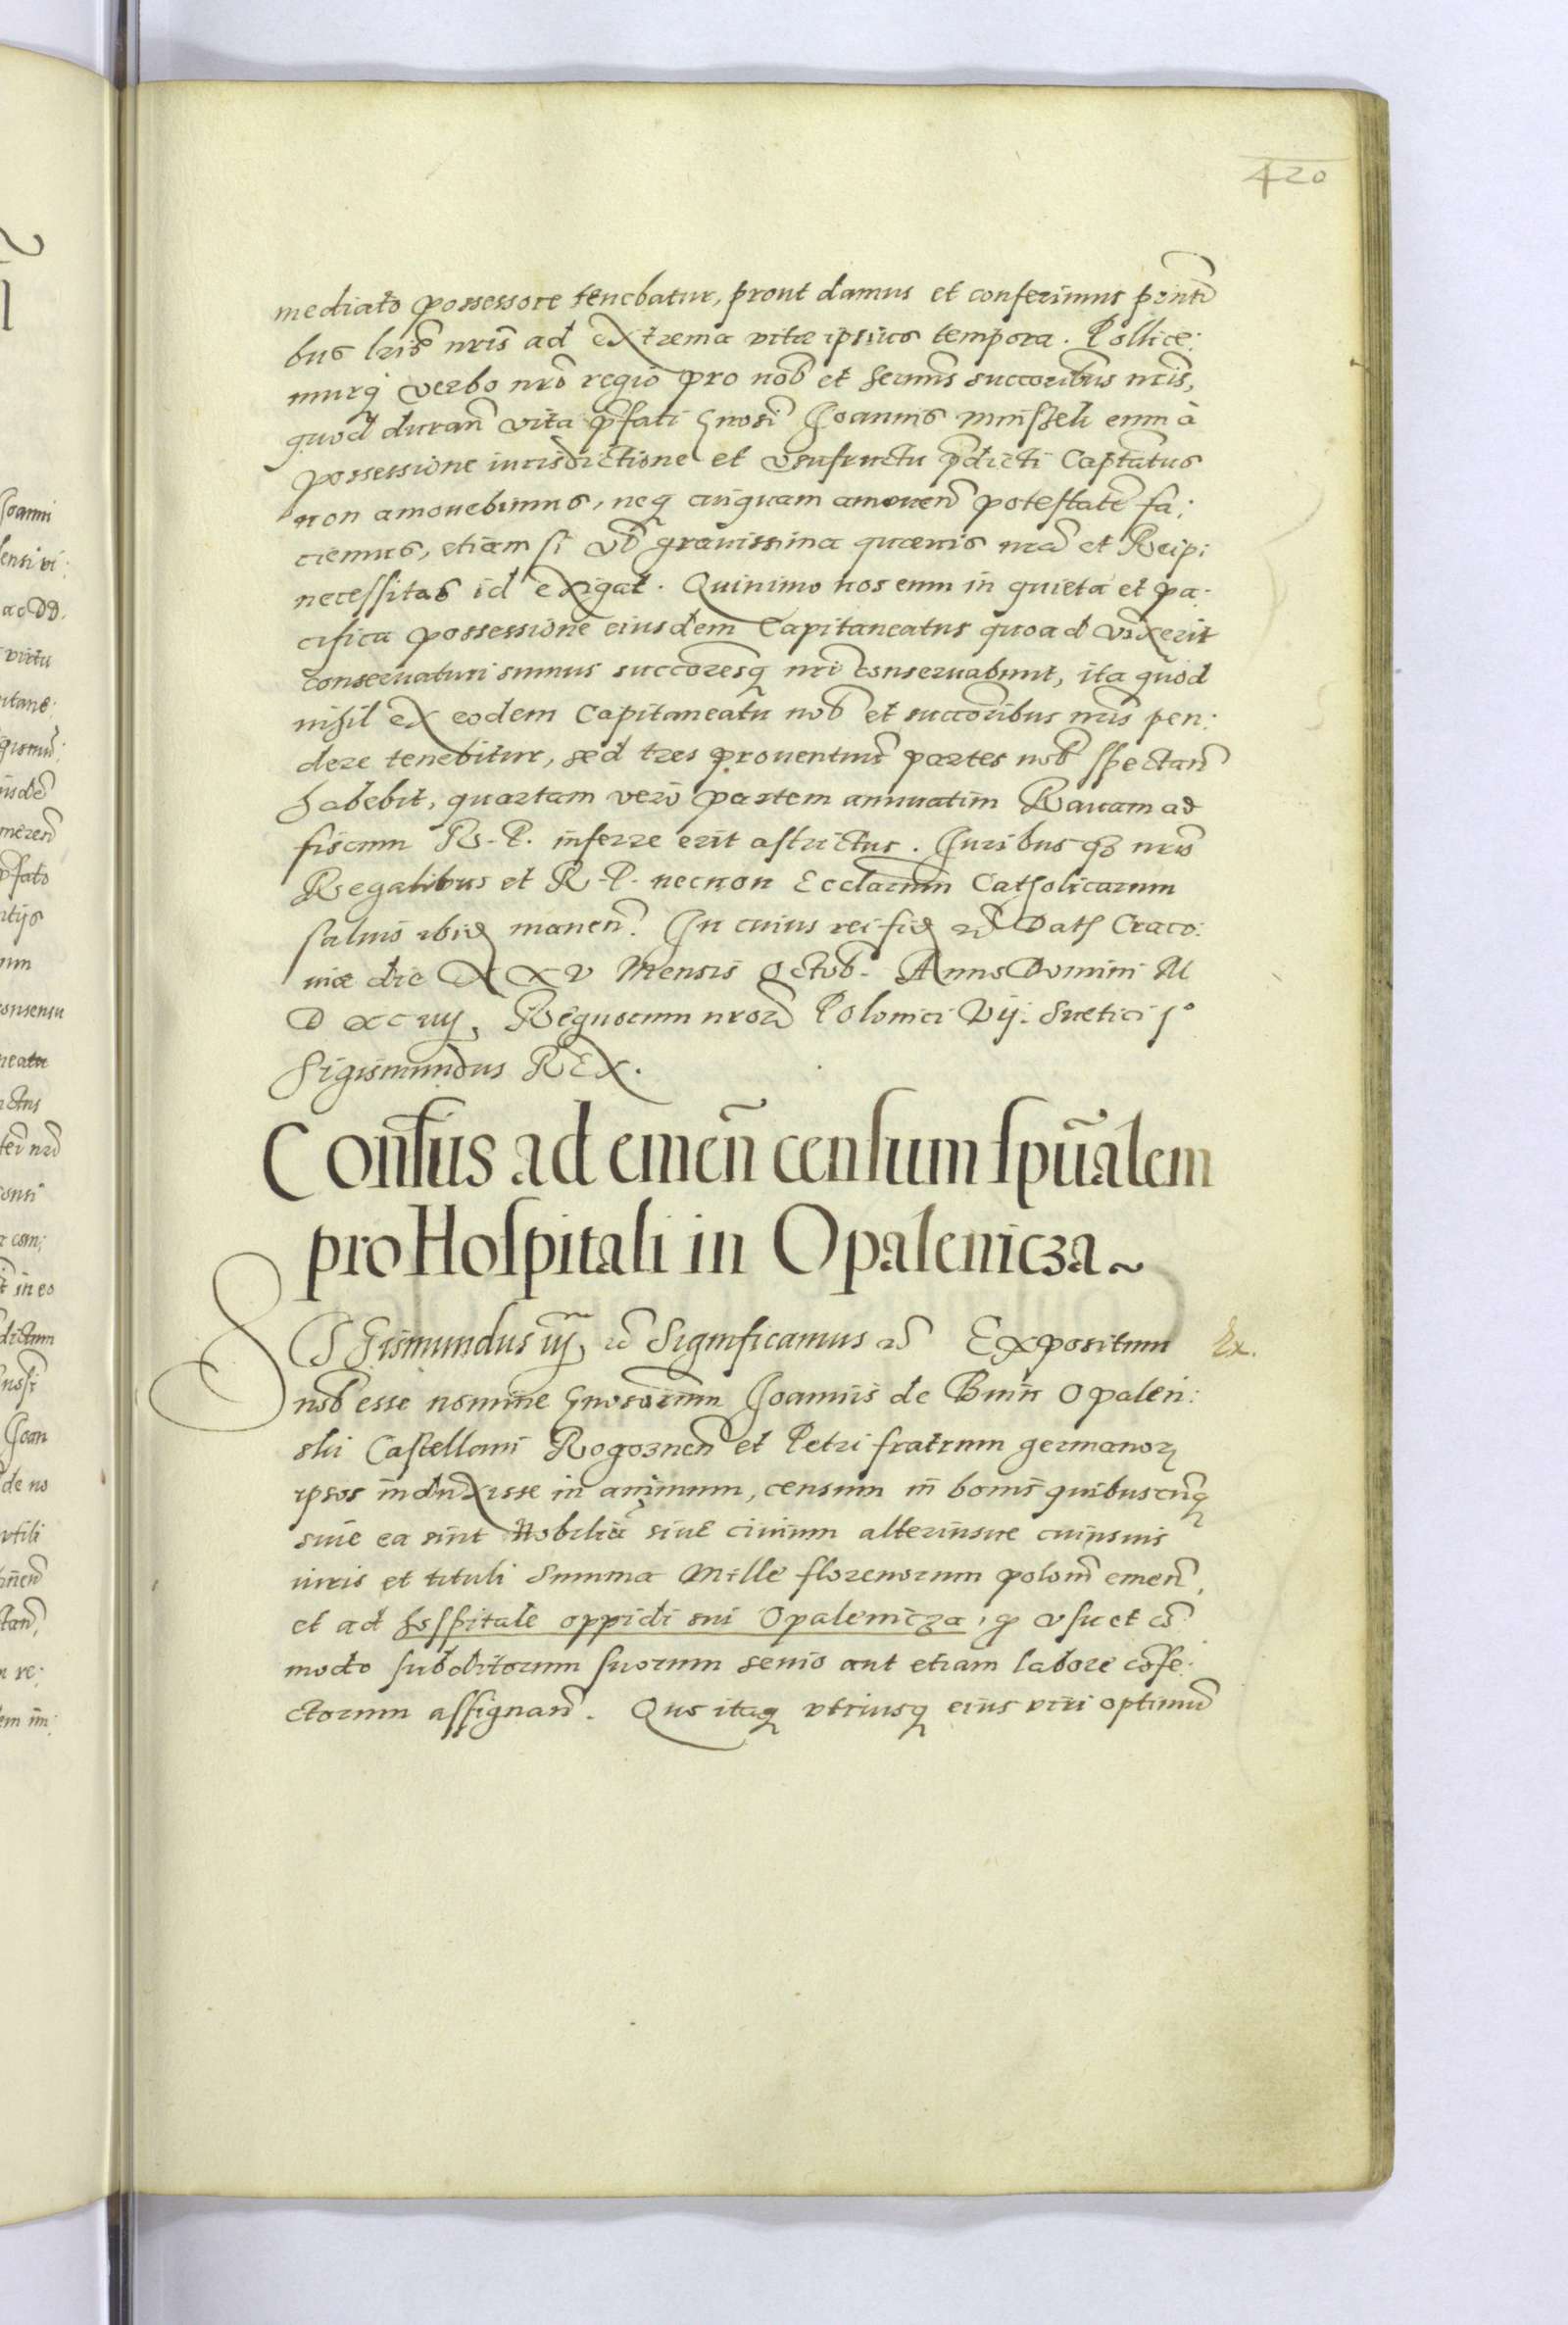 420
mediato possessore tenebatur, prout damus et conferimus pñti
bus lris nris ad extrema vitæ ipsius tempora. Pollice:
murq verbo nro regio pro nob et sermis succoribus nris,
quod duran vita pfati Gnosi Joannis eum à
possessione iurisdictione et usufructu pdicti Captatus
non amovebimus, neq cuiquam amouen potestate fa:
ciemus, etiam si vb gravissima quævis nra et Reip:
necessitas id exigat. Quinimo nos eum in quieta et pa:
cifica possessione eiusdem Capitaneatus quoad vixerit
conservaturi sumus succoresq nri conservabunt, ita quod
nihil ex eodem Capitaneatu nob et succoribus nris pen:
dere tenebitur, sed tres proventuu partes nob spectan
habebit, quartam vero partem annuatim Ravam ad
fiscum R. P. inferre erit astrictus. Juribus q nris
Regalibus et R. P. necnon Ecclarum Catholicarum
salvis ibid manen. In cuius rei fid Dat Craco:
viæ die XXV Mensis Octob. Anno Domini M
D XC iiij, Regnorum nror Polonici Vij. Suetici 1º
Sigismundus REX.
Consus ad emen censum spualem
pro Hospitali in Opalenicza~
SIGismundus iij, Significamus Expositum
Ex.
nob esse nomine Gnosorum Joannis de Bnin Opalen:
ski Castellani Rogoznen et Petri fratrum germanor
ipsos induxisse in animum, censum in bonis quibuscuq
sive ea sint Nobiliu sive civium alteriusve cuiusvis
iuris et tituli Summa Mille florenorum polon emen,
et ad hospitale oppidi sui Opalenicza, p usu et co
modo subditorum suorum senio aut etiam labore cofe:
ctorum assignan. Quo itaq utriusq eius viri optimu